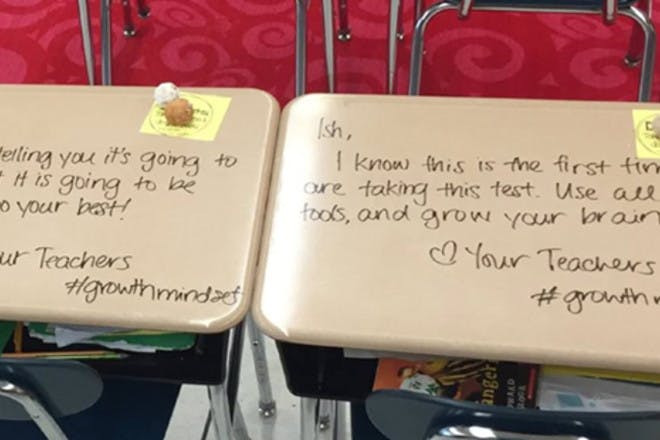 telling you it's going to
it is going to be
your best!
Teachers
#growthmindset
Ish,
I know this is the first
are taking this test. Use all
tools, and grow your brain
♡ Your Teachers
#growth